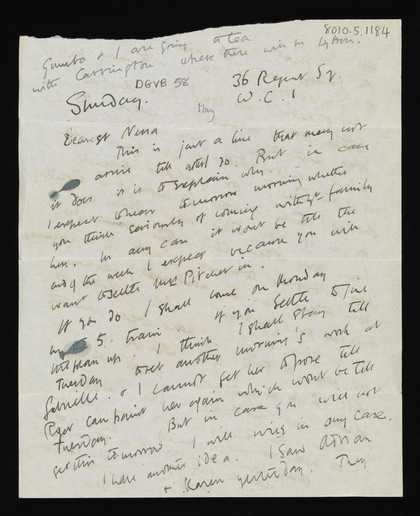 8010.5.1184
Gumbo & I are going to tea
with Carrington where there will be Lytton.
DGVB 58
36 Regent Sq.
Sunday. May W.C.1
Dearest Nessa
This is just a line that may not
arrive till after I do. But in case
it does it is to explain why
I expect to hear tomorrow morning whether
you think seriously of coming with yr family
here. In any case it won't be till the
end of the week I expect because you will
want to settle Pitcher in.
If you do I shall come on Monday
by 5. train. If you settle to give
the plan up. I think I shall stay till
Tuesday to get another morning's work at
Gabrielle. & I cannot get her to pose till
Roger can paint her again which won't be till
Tuesday. But in case you will not
get this tomorrow I will wire in any case.
I have another idea. I saw Adrian
& Karin yesterday. They